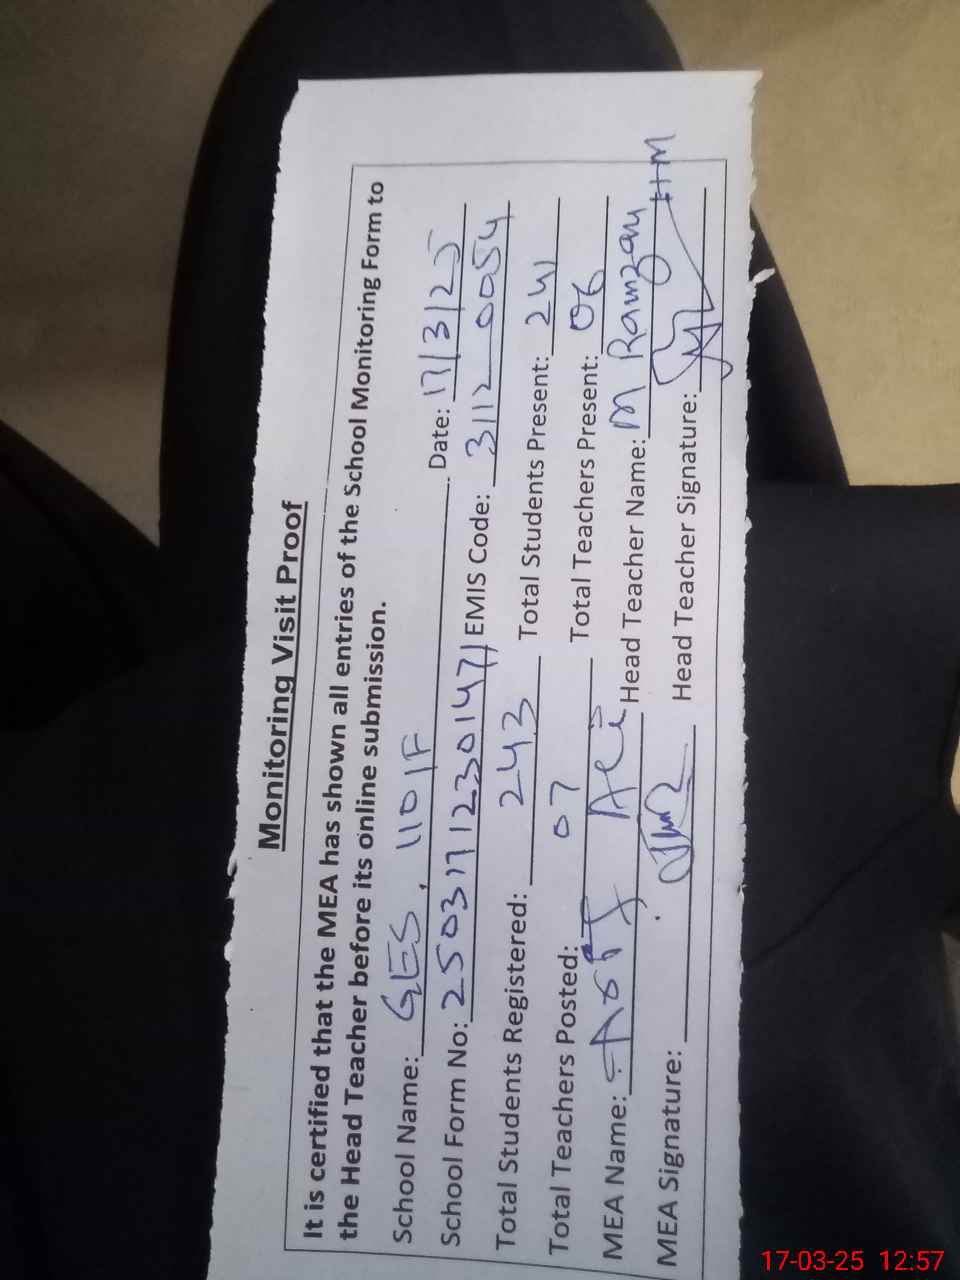 Monitoring Visit Proof
It is certified that the MEA has shown all entries of the School Monitoring Form to
the Head Teacher before its online submission.
School Name: GES, 110/F Date: 17/3/25
School Form No: 250317123014711 EMIS Code: 31120054
Total Students Registered: 243 Total Students Present: 241
Total Teachers Posted: 07 Total Teachers Present: 06
MEA Name: Asif Ali Head Teacher Name: M Ramzan HM
MEA Signature: Head Teacher Signature:
17-03-25 12:57